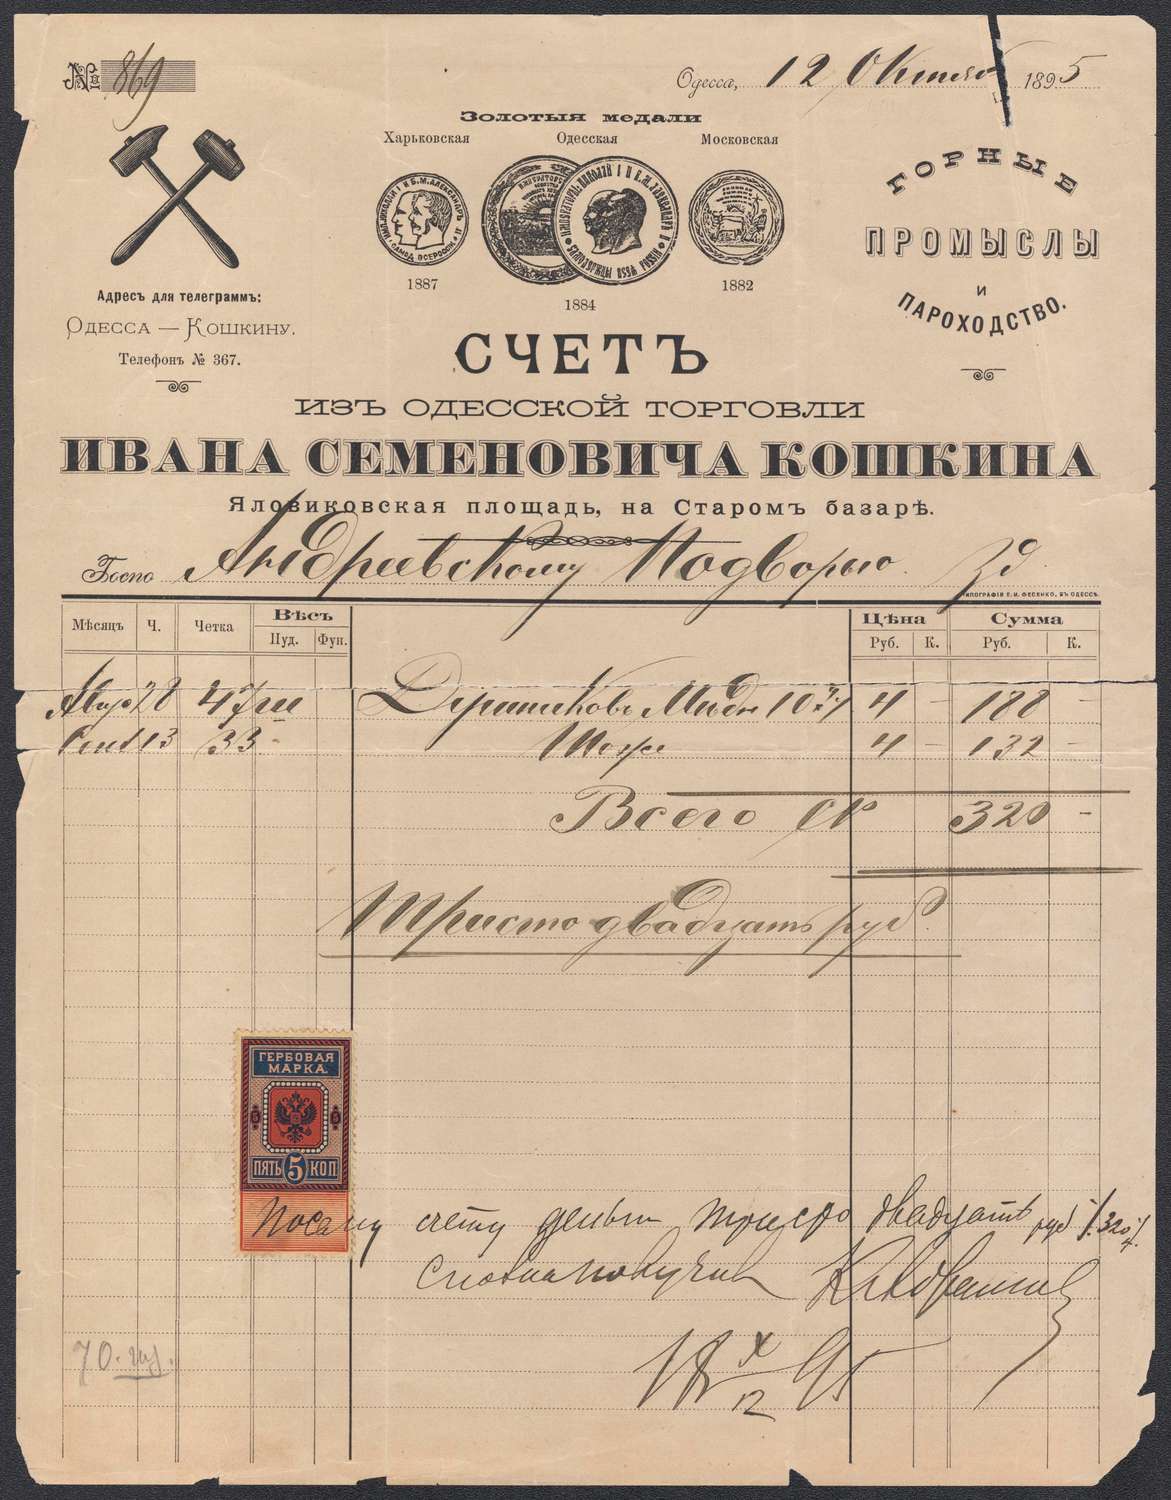 № 869
Одесса, 12 Октября 1895
Золотыя медали
Харьковская Одесская Московская
1887
1884
1882
Адресъ для телеграммъ:
Одесса — Кошкину.
Телефонъ № 367.
ГОРНЫЕ
ПРОМЫСЛЫ
И
ПАРОХОДСТВО.
СЧЕТЪ
ИЗЪ ОДЕССКОЙ ТОРГОВЛИ
ИВАНА СЕМЕНОВИЧА КОШКИНА
Яловиковская площадь, на Старомъ базарѣ.
Госпо Андреевскому Подворью
ТИПОГРАФІЯ Е. И. ФЕСЕНКО, ВЪ ОДЕССѢ.
Мѣсяцъ Ч. Четка Вѣсъ Цѣна Сумма
Пуд. Фун. Руб. К. Руб. К.
Авгус 28 47 4 — 188 —
Сент 13 33 - Тоже 4 — 132 —
Всего 320 -
Триста двадцать руб.
ГЕРБОВАЯ
МАРКА.
ПЯТЬ 5 КОП
По сему счету деньги триста двадцать руб 320
сполна получив
12 X 95
70.